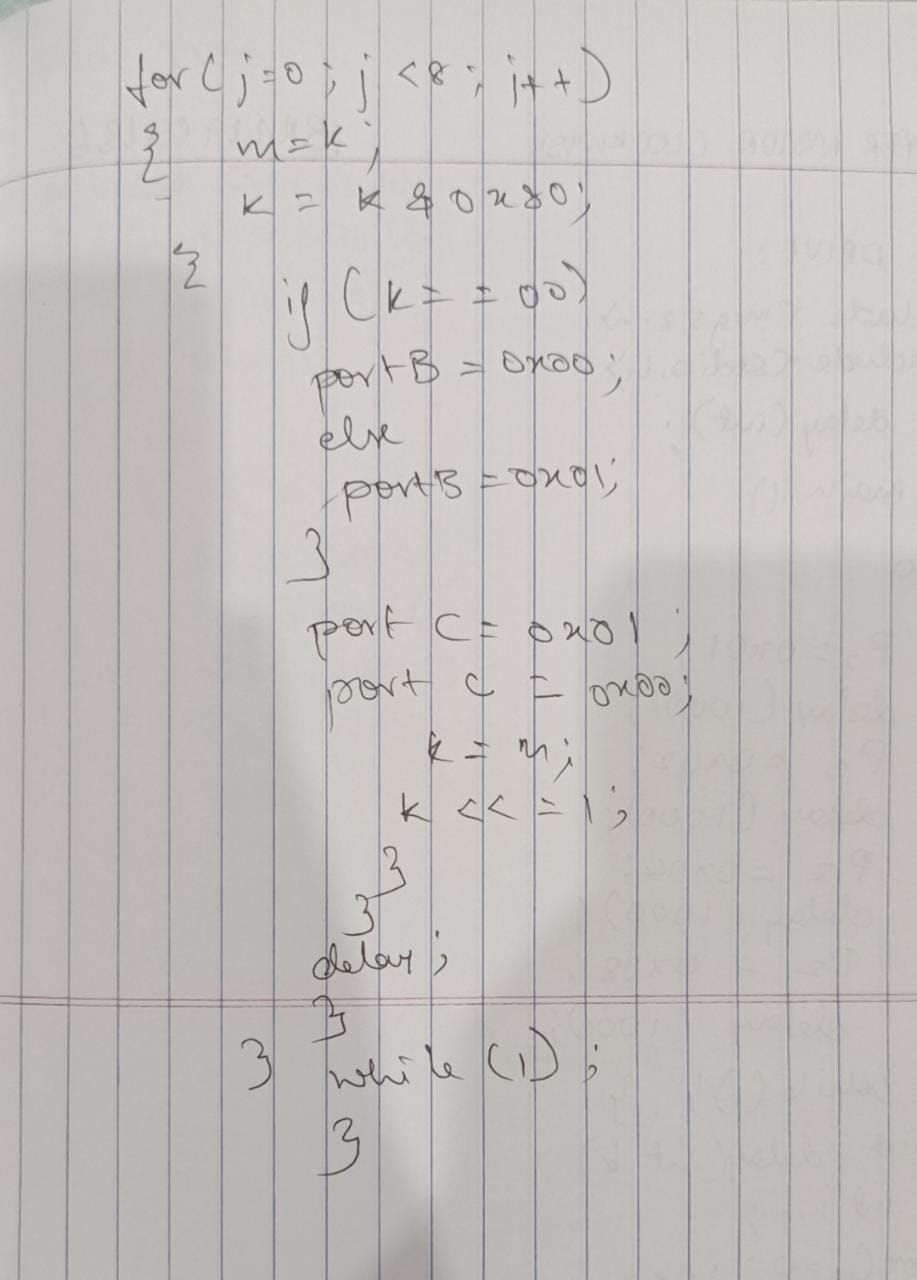 for(j=0; j<8; j++)
{ m=k;
k = k & 0x80;
{
if (k= = 00)
portB = 0x00;
else
portB = 0x01;
}
port C= 0x01;
port C = 0x00;
k = m;
k << = 1;
}
}
delay;
}
} while (1);
}